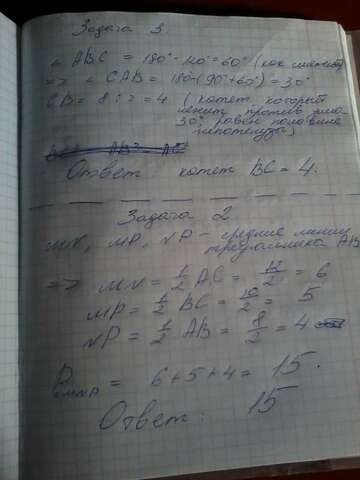 Задача 3
∠ ABC = 180° - 120° = 60° (как смежный)
=> ∠ CAB = 180 - (90° + 60°) = 30°
CB = 8 : 2 = 4 ( катет, который
лежит против угла
30° равен половине
гипотенузы)
Ответ катет BC = 4.
Задача 2
MN, MP, NP - средние линии
треугольника AB
=> MN = 1/2 AC = 12/2 = 6
MP = 1/2 BC = 10/2 = 5
NP = 1/2 AB = 8/2 = 4
P = 6 + 5 + 4 = 15.
Ответ: 15